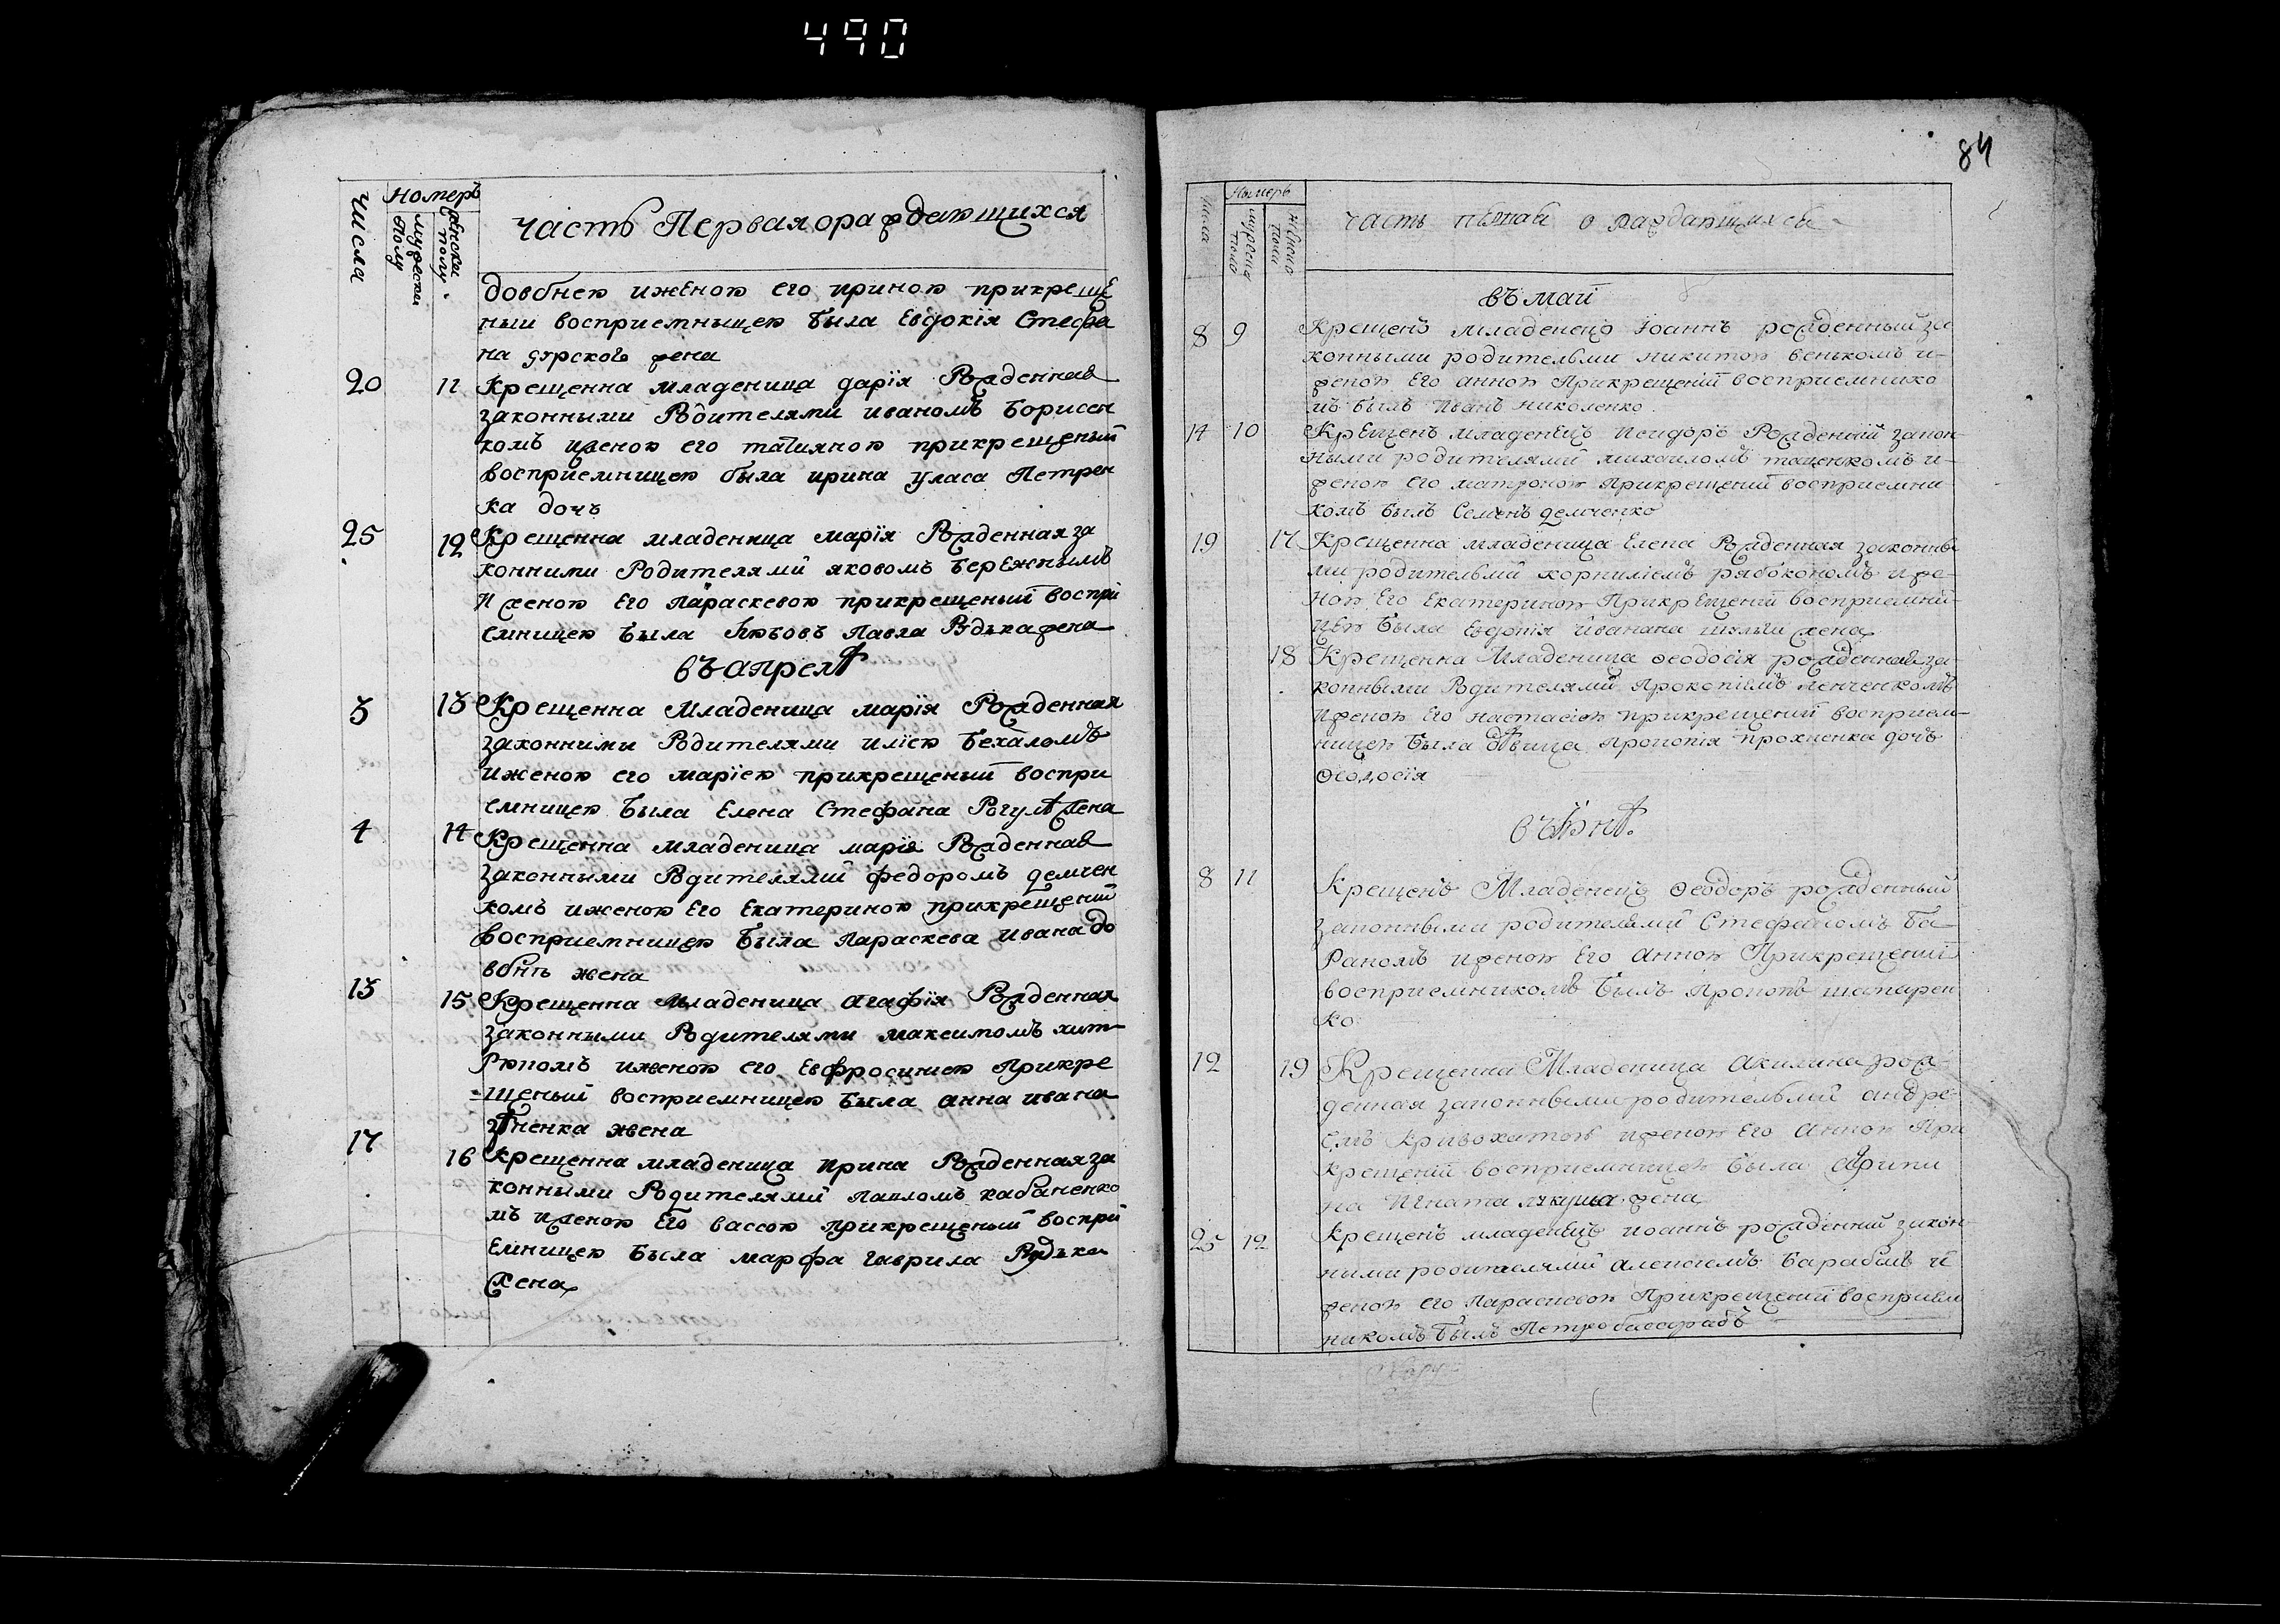 490
числа
номеръ
мужеска полу
женска полу
часть Первая о раждающихся
довбнею иженою его ириною прикреще
ныи восприемныцею была Евдокїя Стефа
на жена
20 11 Крещенна младеница дарїя Рожденная
законными Родителями иваномъ борисен
комъ иженою его татияною прикрещеный
восприемницею была ирина уласа Петрен
ка дочъ
25 12 Крещенна младеница марїя Рожденная за
конними Родителями яковомъ бережнымъ
И женою Его Параскевою прикрещеный воспри
емницею была Павла Рудька жена
въ апрелѣ
3 13 Крещенна Младеница марїя Рожденная
законними Родителями илїею бехаломъ
иженою его марїею прикрещеный воспри
емницею была Елена Стефана Рогулѣ жена
4 14 Крещенна младеница марїя Рожденная
законными Родителями федоромъ демчен
комъ иженою Его Екатериною прикрещений
восприемницею была Параскева ивана до
вбнѣ жена
13 15 Крещенна младеница агафїя Рожденная
законными Родителями максимомъ хит
иженою его Евфросиниею Прикре
щеный восприемницею была анна ивана
жена
17 16 Крещенна младеница ирина Рожденная за
конными Родителями кабаненко
мъ иженою Его вассою прикрещеный воспри
Емницею была марфа гаврила Рудька
жена
84
числа
Номеръ
мужеска полу
женско полу
часть о раждающихся
въ маи
8 9 Крещенъ младенецъ Іоаннъ рожденный за
конными родителями никитою венькомъ и
женою Его анною Прикрещеній восприемнико
мъ былъ Иванъ николенко
14 10 Крещенъ младенецъ Исидоръ Рожденній закон
ными родителями михаиломъ таценкомъ и
женою его матроною прикрещений восприемни
комъ былъ Семенъ демченко
19 17 Крещенна младеница Елена Рожденная законны
ми родителями корнилїемъ рябокономъ и же
ною Его Екатериною Прикрещеній восприемни
цею была Евдокїя жена
18 Крещенна Младеница феодосїя рожденная за
конными Родителями Прокопїемъ
иженою Его настасїею прикрещений восприем
ницею была дѣвица Прокопїя прохненка дочъ
Феодосїя
въ Іюнѣ
8 11 Крещенъ Младенецъ Феодоръ рожденный
законными родителями Стефаномъ Ба
раномъ иженою Его Анною Прикрещений
восприемникомъ былъ Прокопъ шапарен
ко
12 19 Крещенна Младеница Акилина рож
денная законными родителями андре
емъ Кривохатою иженою Его Анною При
крещений восприемницею была
на Игната жена
25 12 Крещенъ младенецъ иоаннъ рожденний закон
ными родителями Алексїемъ Барабашъ и
женою его Параскевою Прикрещений восприем
никомъ былъ Петро